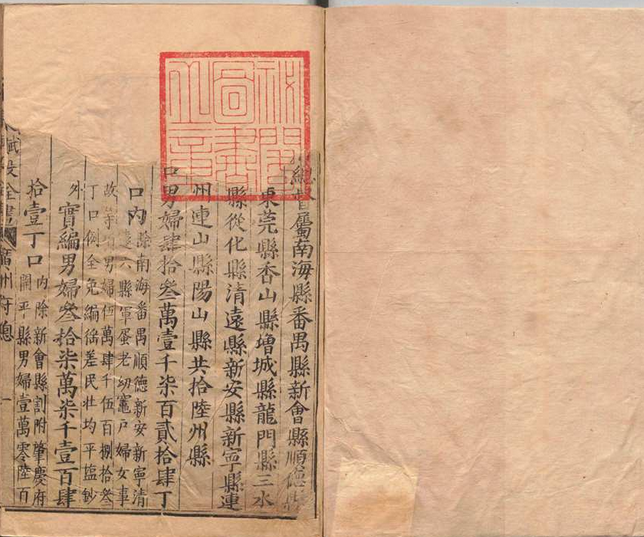 秘閣圖書之章
總屬南海縣番禺縣新會縣順德縣
東莞縣香山縣增城縣龍門縣三水
縣從化縣清遠縣新安縣新寧縣連
州連山縣陽山縣共拾陸州縣
口男婦肆拾叁萬壹千柒百貳拾肆丁
口內
除南海番禺順德新安新寧清
六縣軍蛋老幼竈戶婦女事
故男婦伍萬肆千伍百捌拾叁
丁口例全免編徭差民壯均平鹽鈔
外實編男婦叁拾柒萬柒千壹百肆
拾壹丁口
內除新會縣割附肇慶府
開平縣男婦壹萬零陸百
賦役全書 廣州府總 一